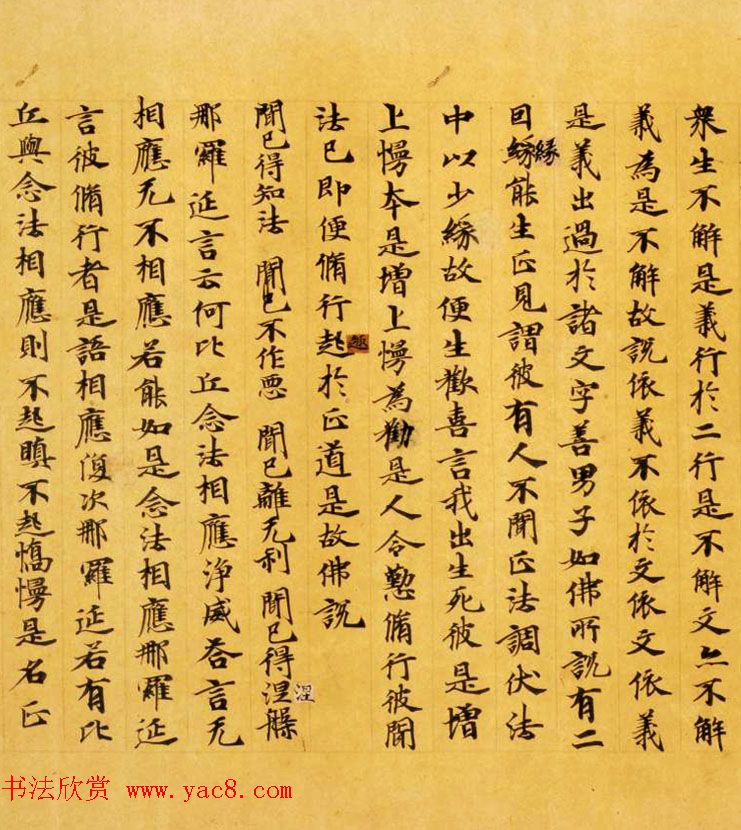 衆生不解是義行於二行是不解文亦不解
義為是不解故説依義不依於文依文依義
是義出過於諸文字善男子如佛所説有二
因緣能生正見謂彼有人不聞正法調伏法
緣
中以少緣故便生歡喜言我出生死彼是增
上慢本是增上慢為勸是人令懃脩行彼聞
法已即便脩行趣於正道是故佛説
趣
聞已得知法 聞已不作惡 聞已離无利 聞已得涅槃
涅
那羅延言云何比丘念法相應淨威荅言无
相應无不相應若能如是念法相應那羅延
言彼脩行者是語相應復次那羅延若有比
丘與念法相應則不起瞋不起憍慢是名正
书法欣赏 www.yac8.com